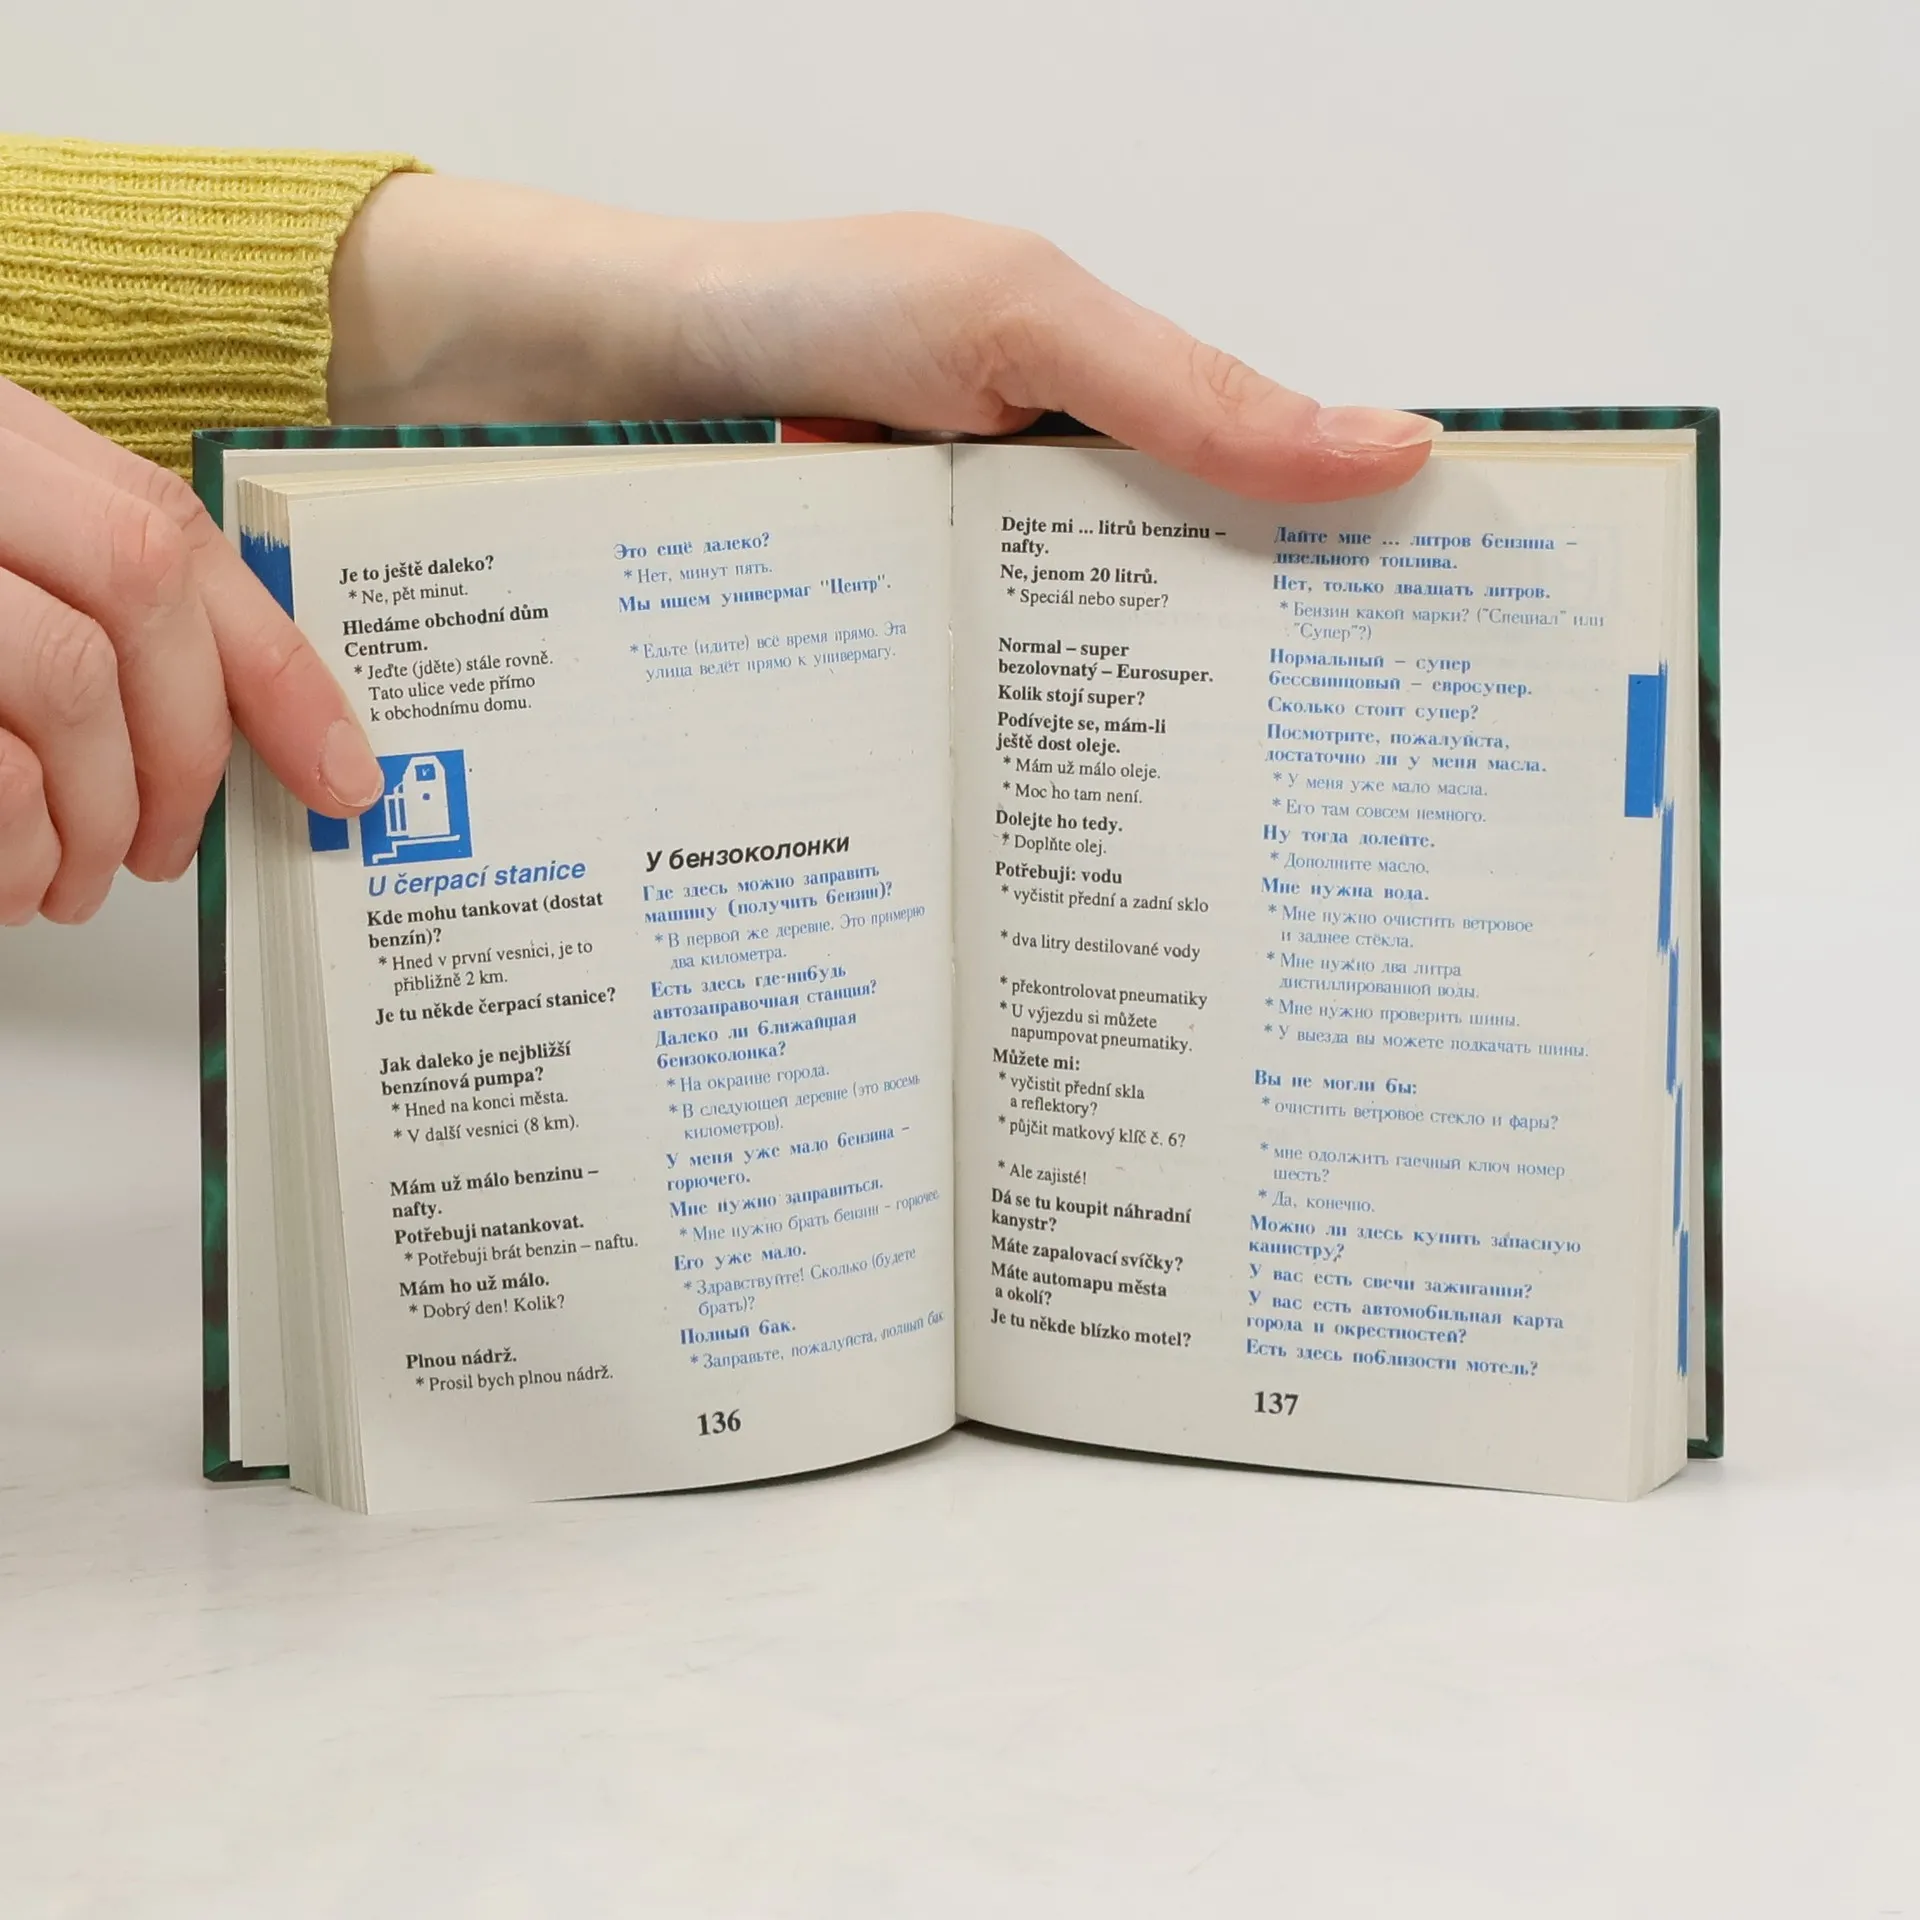 Je to ještě daleko?
* Ne, pět minut.
Hledáme obchodní dům
Centrum.
* Jeďte (jděte) stále rovně.
Tato ulice vede přímo
k obchodnímu domu.
U čerpací stanice
Kde mohu tankovat (dostat
benzín)?
* Hned v první vesnici, je to
přibližně 2 km.
Je tu někde čerpací stanice?
Jak daleko je nejbližší
benzínová pumpa?
* Hned na konci města.
* V další vesnici (8 km).
Mám už málo benzinu –
nafty.
Potřebuji natankovat.
* Potřebuji brát benzin – naftu.
Mám ho už málo.
* Dobrý den! Kolik?
Plnou nádrž.
* Prosil bych plnou nádrž.
Это ещё далеко?
* Нет, минут пять.
Мы ищем универмаг "Центр".
* Едьте (идите) всё время прямо. Эта
улица ведёт прямо к универмагу.
У бензоколонки
Где здесь можно заправить
машину (получить бензин)?
* В первой же деревне. Это примерно
два километра.
Есть здесь где-нибудь
автозаправочная станция?
Далеко ли ближайшая
бензоколонка?
* На окраине города.
* В следующей деревне (это восемь
километров).
У меня уже мало бензина –
горючего.
Мне нужно заправиться.
* Мне нужно брать бензин – горючее.
Его уже мало.
* Здравствуйте! Сколько (будете
брать)?
Полный бак.
* Заправьте, пожалуйста, полный бак
136
Dejte mi ... litrů benzinu –
nafty.
Ne, jenom 20 litrů.
* Speciál nebo super?
Normal – super
bezolovnatý – Eurosuper.
Kolik stojí super?
Podívejte se, mám-li
ještě dost oleje.
* Mám už málo oleje.
* Moc ho tam není.
Dolejte ho tedy.
* Doplňte olej.
Potřebuji: vodu
* vyčistit přední a zadní sklo
* dva litry destilované vody
* překontrolovat pneumatiky
* U výjezdu si můžete
napumpovat pneumatiky.
Můžete mi:
* vyčistit přední skla
a reflektory?
* půjčit matkový klíč č. 6?
* Ale zajisté!
Dá se tu koupit náhradní
kanystr?
Máte zapalovací svíčky?
Máte automapu města
a okolí?
Je tu někde blízko motel?
Дайте мне ... литров бензина –
дизельного топлива.
Нет, только двадцать литров.
* Бензин какой марки? ("Специал" или
"Супер"?)
Нормальный – супер
бессвинцовый – евросупер.
Сколько стоит супер?
Посмотрите, пожалуйста,
достаточно ли у меня масла.
* У меня уже мало масла.
* Его там совсем немного.
Ну тогда долейте.
* Дополните масло.
Мне нужна вода.
* Мне нужно очистить ветровое
и заднее стёкла.
* Мне нужно два литра
дистиллированной воды.
* Мне нужно проверить шины.
* У выезда вы можете подкачать шины.
Вы не могли бы:
* очистить ветровое стекло и фары?
* мне одолжить гаечный ключ номер
шесть?
* Да, конечно.
Можно ли здесь купить запасную
канистру?
У вас есть свечи зажигания?
У вас есть автомобильная карта
города и окрестностей?
Есть здесь поблизости мотель?
137